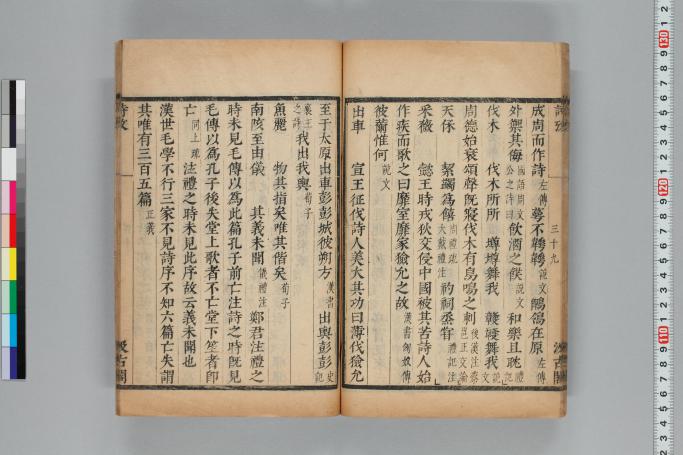 成周而作詩左傳萼不韡韡說文鶺鴒在原左傳
外禦其侮國語周文公之詩曰飲酒之饫說文和樂且耽禮
伐木 伐木所所 壿壿舞我 竷竷舞我說文
周德始衰頌聲旣寢伐木有鳥鳴之刺後漢注蔡邕正交論
天保 絜蠲爲饎周禮疏大戴禮注 礿祠烝甞禮記注
采薇 懿王時戎狄交侵中國被其苦詩人始
作疾而歌之曰靡室靡家獫允之故漢書匈奴傳
彼薾惟何說文
出車 宣王征伐詩人美大其功曰薄伐獫允
至于太原出車彭彭城彼朔方漢書出輿彭彭史記
襄王之詩我出我輿荀子
魚麗 物其指矣唯其偕矣荀子
南陔至由儀 其義未聞儀禮注鄭君注禮之
時未見毛傳以爲此篇孔子前亡注詩之時旣見
毛傳以爲孔子後失堂上歌者不亡堂下笙者卽
亡同上疏注禮之時未見此序故云義未聞也
漢世毛學不行三家不見詩序不知六篇亡失謂
其唯有三百五篇正義
三十九
汲古閣
汲古閣